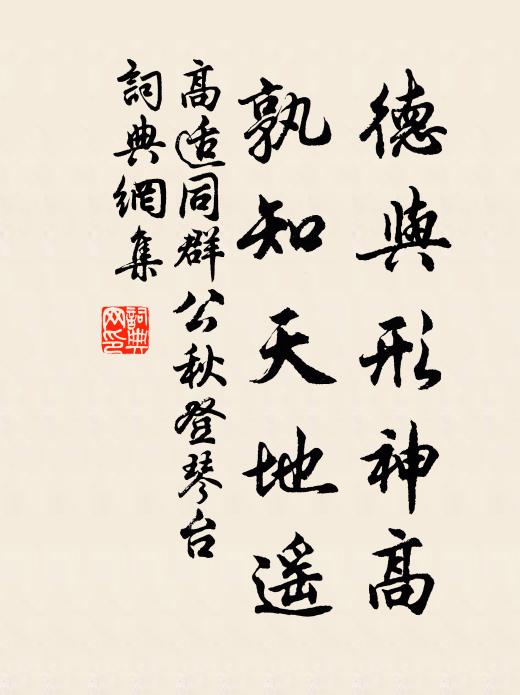 德與形神高
孰知天地遥
高适同群公秋登琴台
詞典網集
詞典
网印